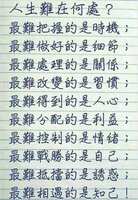 人生難在何處？
最難把握的是時機；
最難做好的是細節；
最難處理的是關係；
最難改變的是習慣；
最難得到的是人心；
最難分配的是利益；
最難控制的是情緒；
最難戰勝的是自己；
最難抵擋的是誘惑；
最難相遇的是知己！